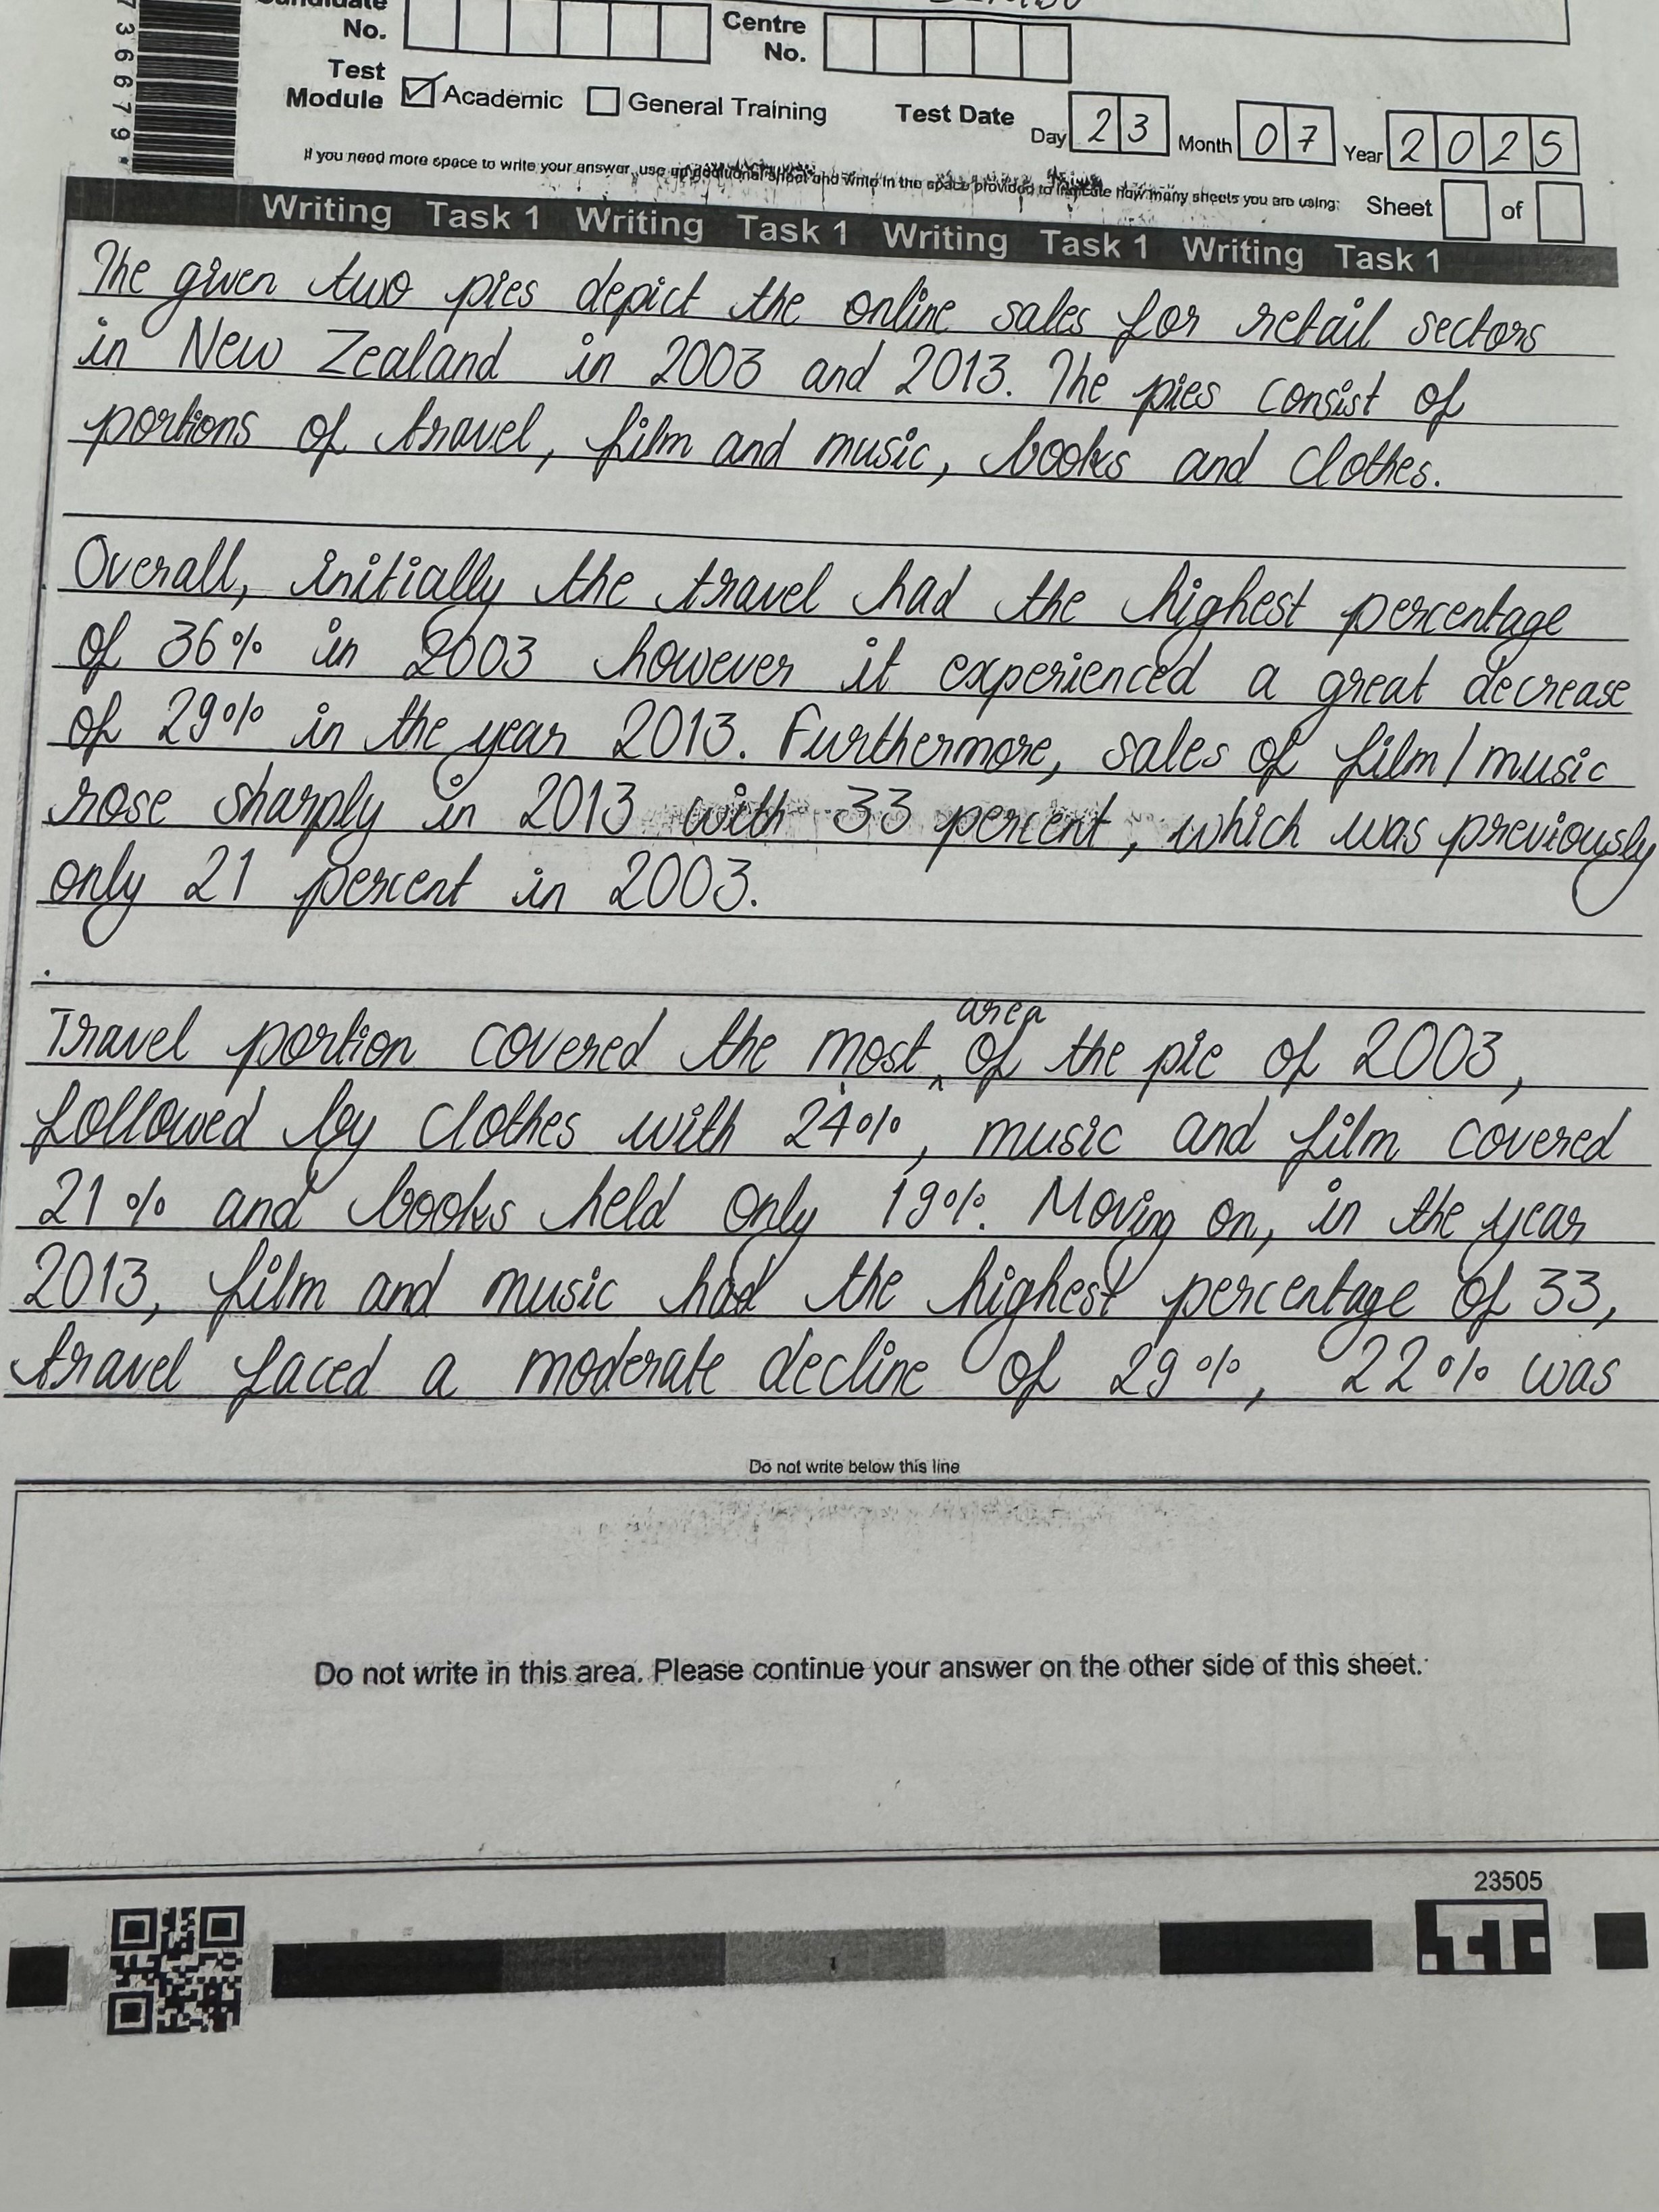 No.
Centre
No.
Test
Module
Academic
General Training
Test Date
Day 23 Month 07 Year 2025
If you need more space to write your answer, use an additional sheet and write in the space provided to indicate how many sheets you are using: Sheet of
Writing Task 1 Writing Task 1 Writing Task 1 Writing Task 1
The given two pies depict the online sales for retail sectors
in New Zealand in 2003 and 2013. The pies consist of
portions of travel, film and music, books and clothes.
Overall, initially the travel had the highest percentage
of 36% in 2003 however it experienced a great decrease
of 29% in the year 2013. Furthermore, sales of film/music
rose sharply in 2013 with 33 percent, which was previously
only 21 percent in 2003.
Travel portion covered the most area of the pie of 2003,
followed by clothes with 24%, music and film covered
21% and books held only 19%. Moving on, in the year
2013, film and music had the highest percentage of 33,
travel faced a moderate decline of 29%, 22% was
Do not write below this line
Do not write in this area. Please continue your answer on the other side of this sheet.
23505